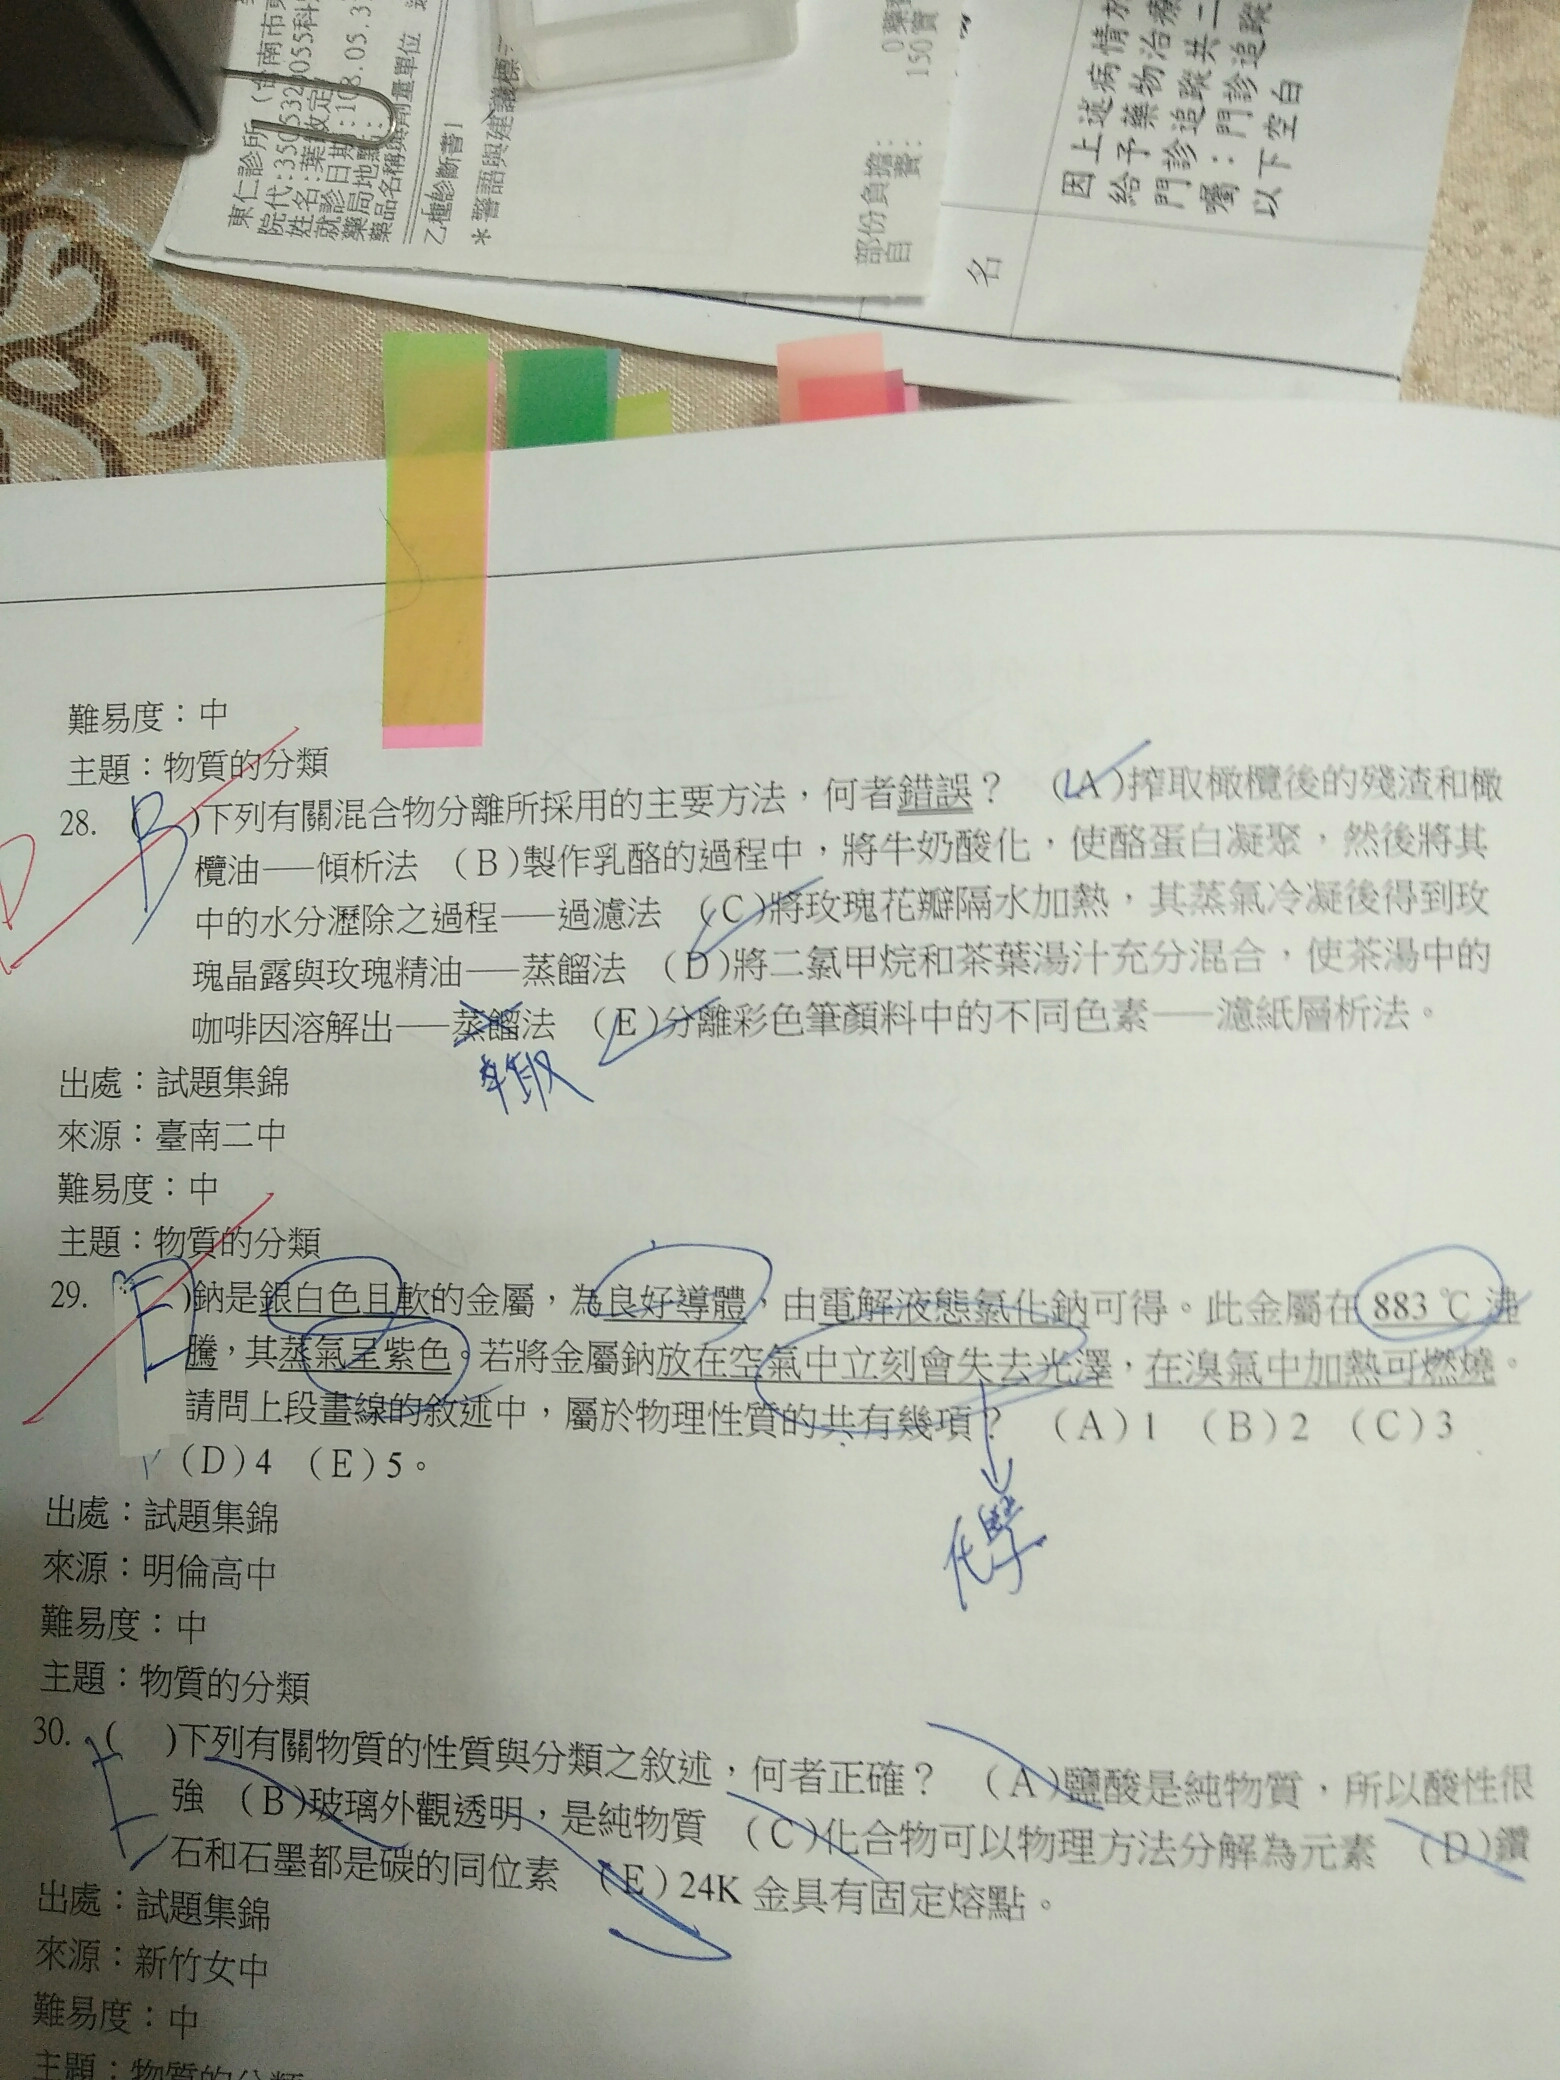 東仁診所
乙種診斷書
*警語與建議
部份負擔:
150
名
因上述病情
給予藥物治療
門診追蹤共二
囑:門診追蹤
以下空白
難易度:中
主題:物質的分類
28. B )下列有關混合物分離所採用的主要方法,何者錯誤? (A)搾取橄欖後的殘渣和橄
D
欖油──傾析法 (B)製作乳酪的過程中,將牛奶酸化,使酪蛋白凝聚,然後將其
中的水分瀝除之過程──過濾法 (C)將玫瑰花瓣隔水加熱,其蒸氣冷凝後得到玫
瑰晶露與玫瑰精油──蒸餾法 (D)將二氯甲烷和茶葉湯汁充分混合,使茶湯中的
咖啡因溶解出──蒸餾法 (E)分離彩色筆顏料中的不同色素──濾紙層析法。
出處:試題集錦
來源:臺南二中
難易度:中
主題:物質的分類
29. E )鈉是銀白色且軟的金屬,為良好導體,由電解液態氯化鈉可得。此金屬在 883 ℃ 沸
騰,其蒸氣呈紫色。若將金屬鈉放在空氣中立刻會失去光澤,在溴氣中加熱可燃燒。
請問上段畫線的敘述中,屬於物理性質的共有幾項? (A)1 (B)2 (C)3
(D)4 (E)5。
化學
出處:試題集錦
來源:明倫高中
難易度:中
主題:物質的分類
30. ( )下列有關物質的性質與分類之敘述,何者正確? (A)鹽酸是純物質,所以酸性很
E
強 (B)玻璃外觀透明,是純物質 (C)化合物可以物理方法分解為元素 (D)鑽
石和石墨都是碳的同位素 (E)24K 金具有固定熔點。
出處:試題集錦
來源:新竹女中
難易度:中
主題:物質的分類